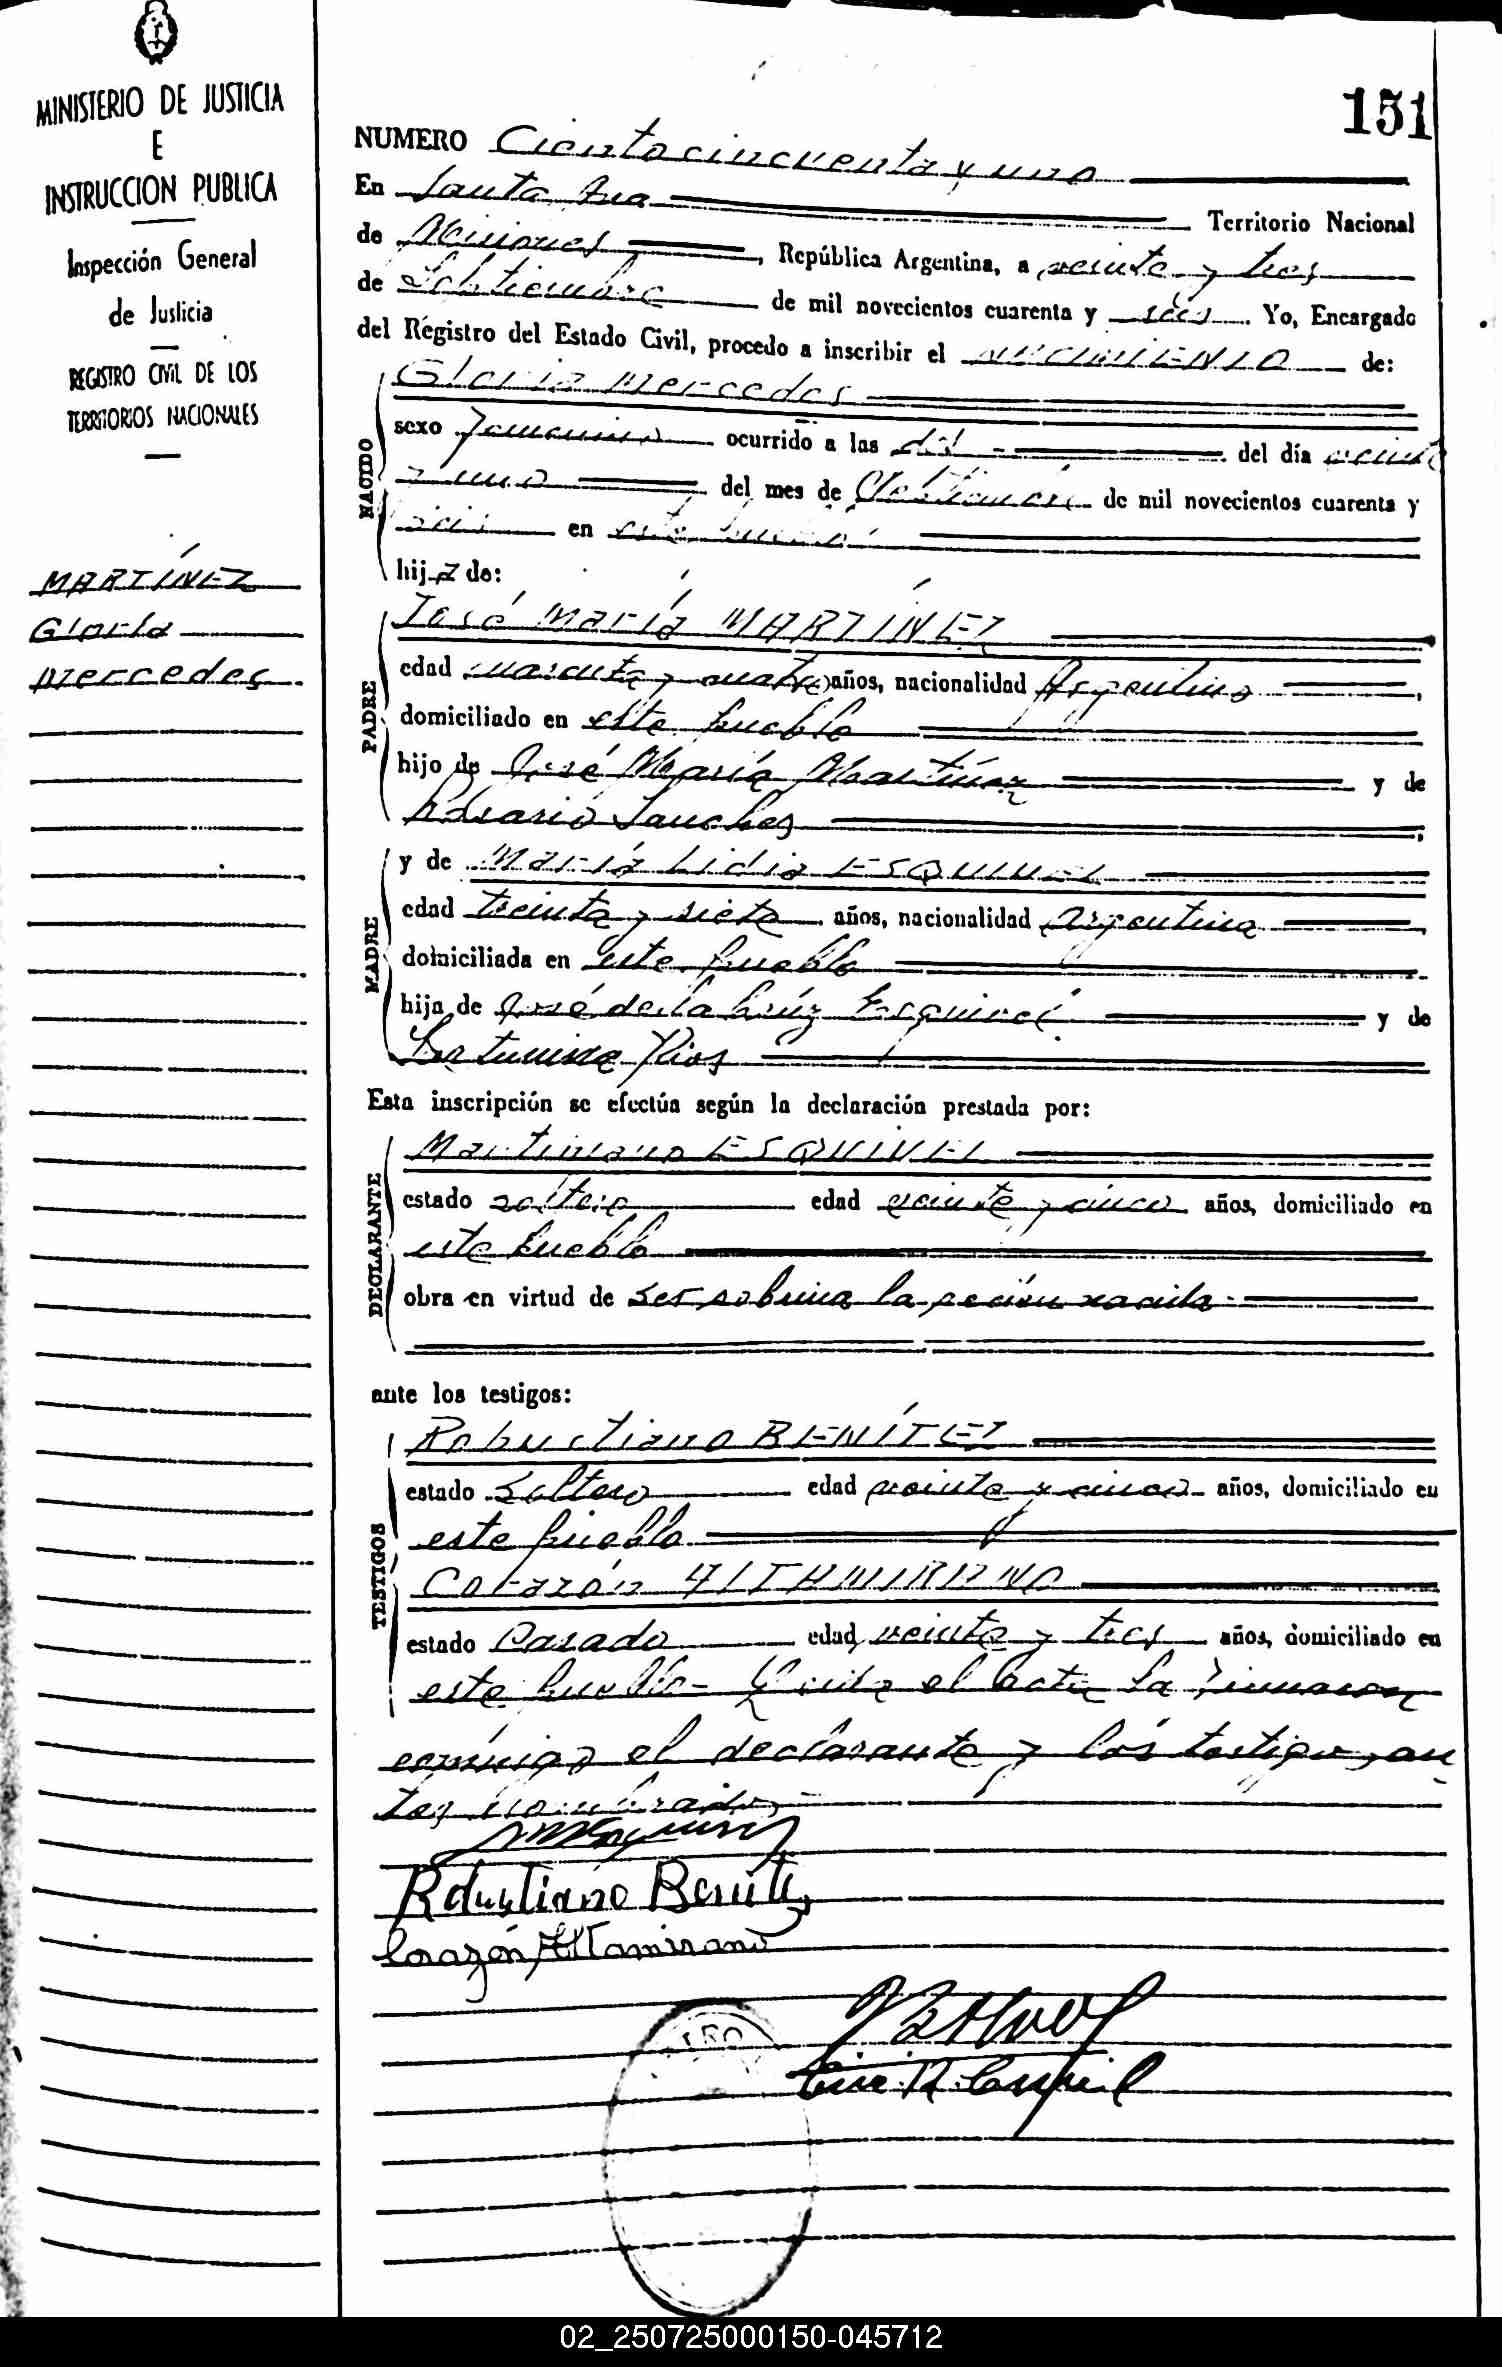 MINISTERIO DE JUSTICIA
E
INSTRUCCION PUBLICA
Inspección General
de Justicia
REGISTRO CIVIL DE LOS
TERRITORIOS NACIONALES
MARTÍNEZ
Gloria
Mercedes
151
NUMERO Ciento cincuenta y uno
En Santa Ana Territorio Nacional
de Misiones, República Argentina, a veinte y tres
de Setiembre de mil novecientos cuarenta y seis. Yo, Encargado
del Registro del Estado Civil, procedo a inscribir el NACIMIENTO de:
NACIDO
Gloria Mercedes
sexo Femenino ocurrido a las del día veinte
y uno del mes de Setiembre de mil novecientos cuarenta y
seis en este pueblo
hija de:
PADRE
José María MARTÍNEZ
edad cuarenta y cuatro años, nacionalidad Argentino,
domiciliado en este pueblo
hijo de José María Martínez y de
Rosario Sanchez,
MADRE
y de María Lidia ESQUIVEL
edad treinta y siete años, nacionalidad argentina,
domiciliada en este pueblo
hija de José de la Crúz Esquivel y de
Saturnina Rios
Esta inscripción se efectúa según la declaración prestada por:
DECLARANTE
Martiniano ESQUIVEL
estado soltero edad veinte y cinco años, domiciliado en
este pueblo
obra en virtud de ser sobrina la recién nacida
ante los testigos:
TESTIGOS
Robustiano BENÍTEZ
estado Soltero edad veinte y cinco años, domiciliado en
este pueblo
Corazón ALTAMIRANO
estado Casado edad veinte y tres años, domiciliado en
este pueblo - Leida el acta la firmaron
conmigo el declarante y los testigos an-
tes nombrados
Robustiano Benitez
Corazón Altamirano
02_250725000150-045712